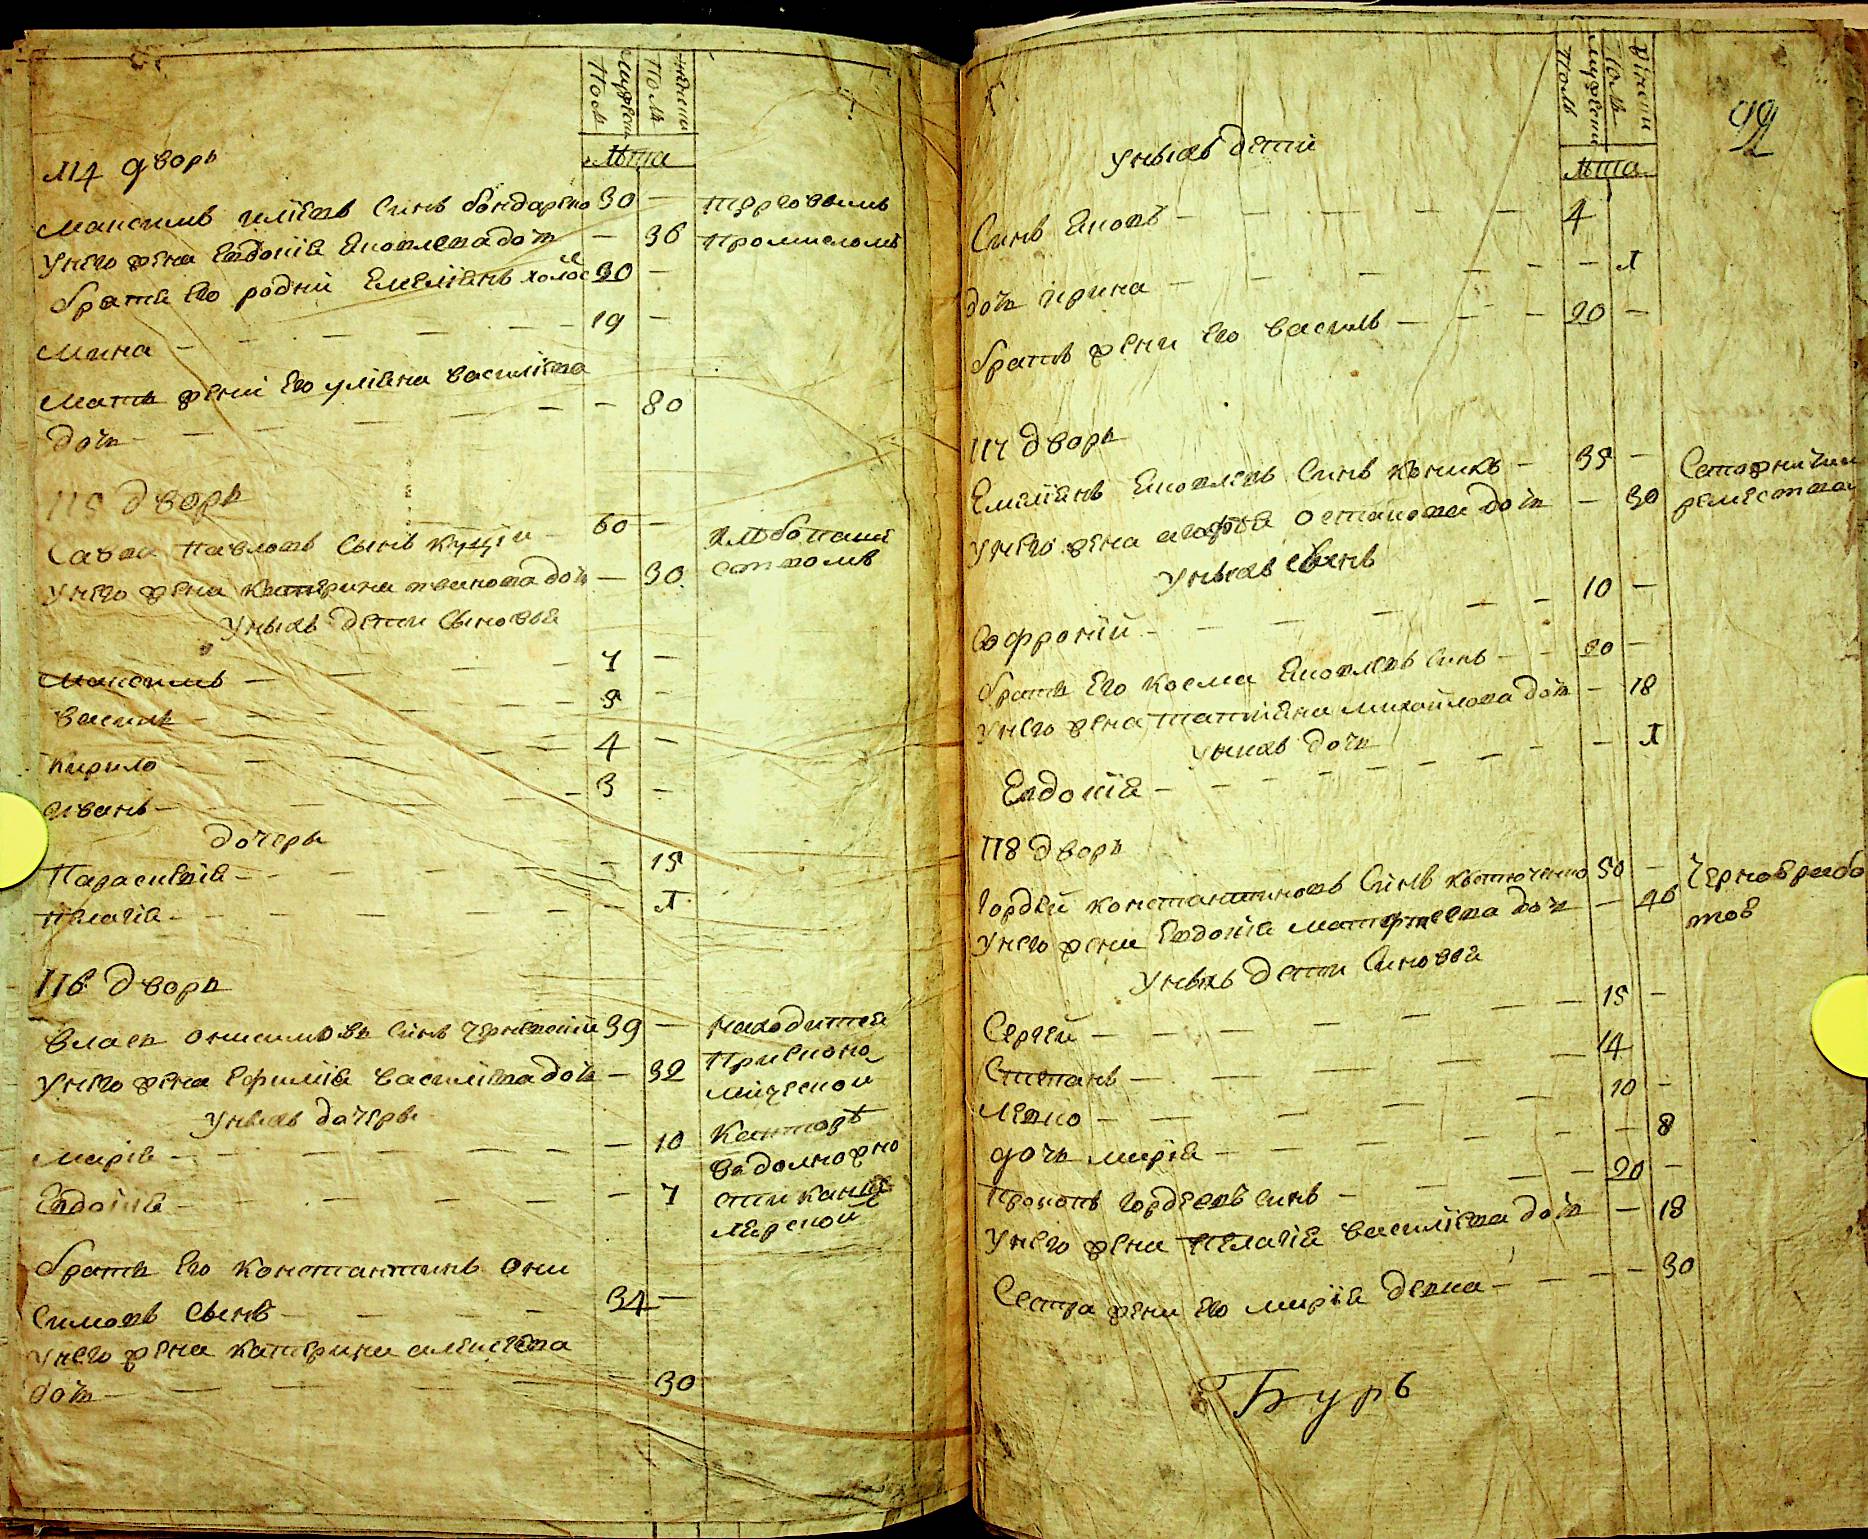 Мужеский
Полъ
Женски
Полъ
Лѣта
114 дворъ
Максимъ Илиевъ Синъ бондаренко 30 — торговимъ
Унего жена Евдокия Яковлева дочь — 36 промисломъ
братя Его родние Емелиянъ холос 30 —
Мина — 19 —
Мать жени Его улияна василиева
дочь — — 80
115 дворъ
Савва Павловъ Сынъ куцїи 60 — хлѣбопаш
Унего жена катерина иванова дочь — 30 ством
Унихъ дети Сыновья
Максимъ — 7 —
Василь — 5 —
Кирило — 4 —
Иванъ — 3 —
дочеры
Параскевия — — 15
Пелагия — — 1
116 дворъ
Власъ Онисимовъ Синъ Чернявский 39 — находится
Унего жена Ефимия василиева дочь — 32 При Сионо
мпческой
Унихъ дочеры
Мария — — 10 Канторѣ
в должно
Евдокия — — 7 сти канце
лярской
братъ Его Константинъ Они
симовъ Сынъ — 34 —
Унего жена катерина алексеева
дочь — — 30
92
Мужески
Полъ
Женски
Полъ
Лѣта
Унихъ дети
Синъ Яковъ — 4
дочь ирина — — 1
братъ жени Его василь — 20 —
117 дворъ
Емелиянъ Яковлевъ Синъ коникъ — 35 — Сапожничим
Унего жена агафия Остапова дочь — 30 ремеством
Унихъ Сынъ
Софроний — 10 —
братъ Его косма Яковлевъ Синъ — 20 —
Унего жена татияна михайлова дочь — 18
Унихъ дочь
Евдокия — — 1
118 дворъ
Гордей константиновъ Синъ костюченко 50 — Чернорабо
Унего жена Евдокия матфеева дочь — 46 тов
Унихъ дети Синовья
Сергей — 15 —
Степанъ — 14
Левко — 10 —
дочь мария — — 8
Прокопъ Гордеевъ Синъ — 20 —
Унего жена Пелагия василиева дочь — 18
Сестра жени Его мария девка — — 30
Буръ